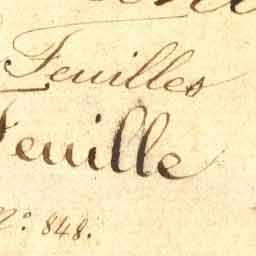 Feuilles
Feuille
N.º 848.